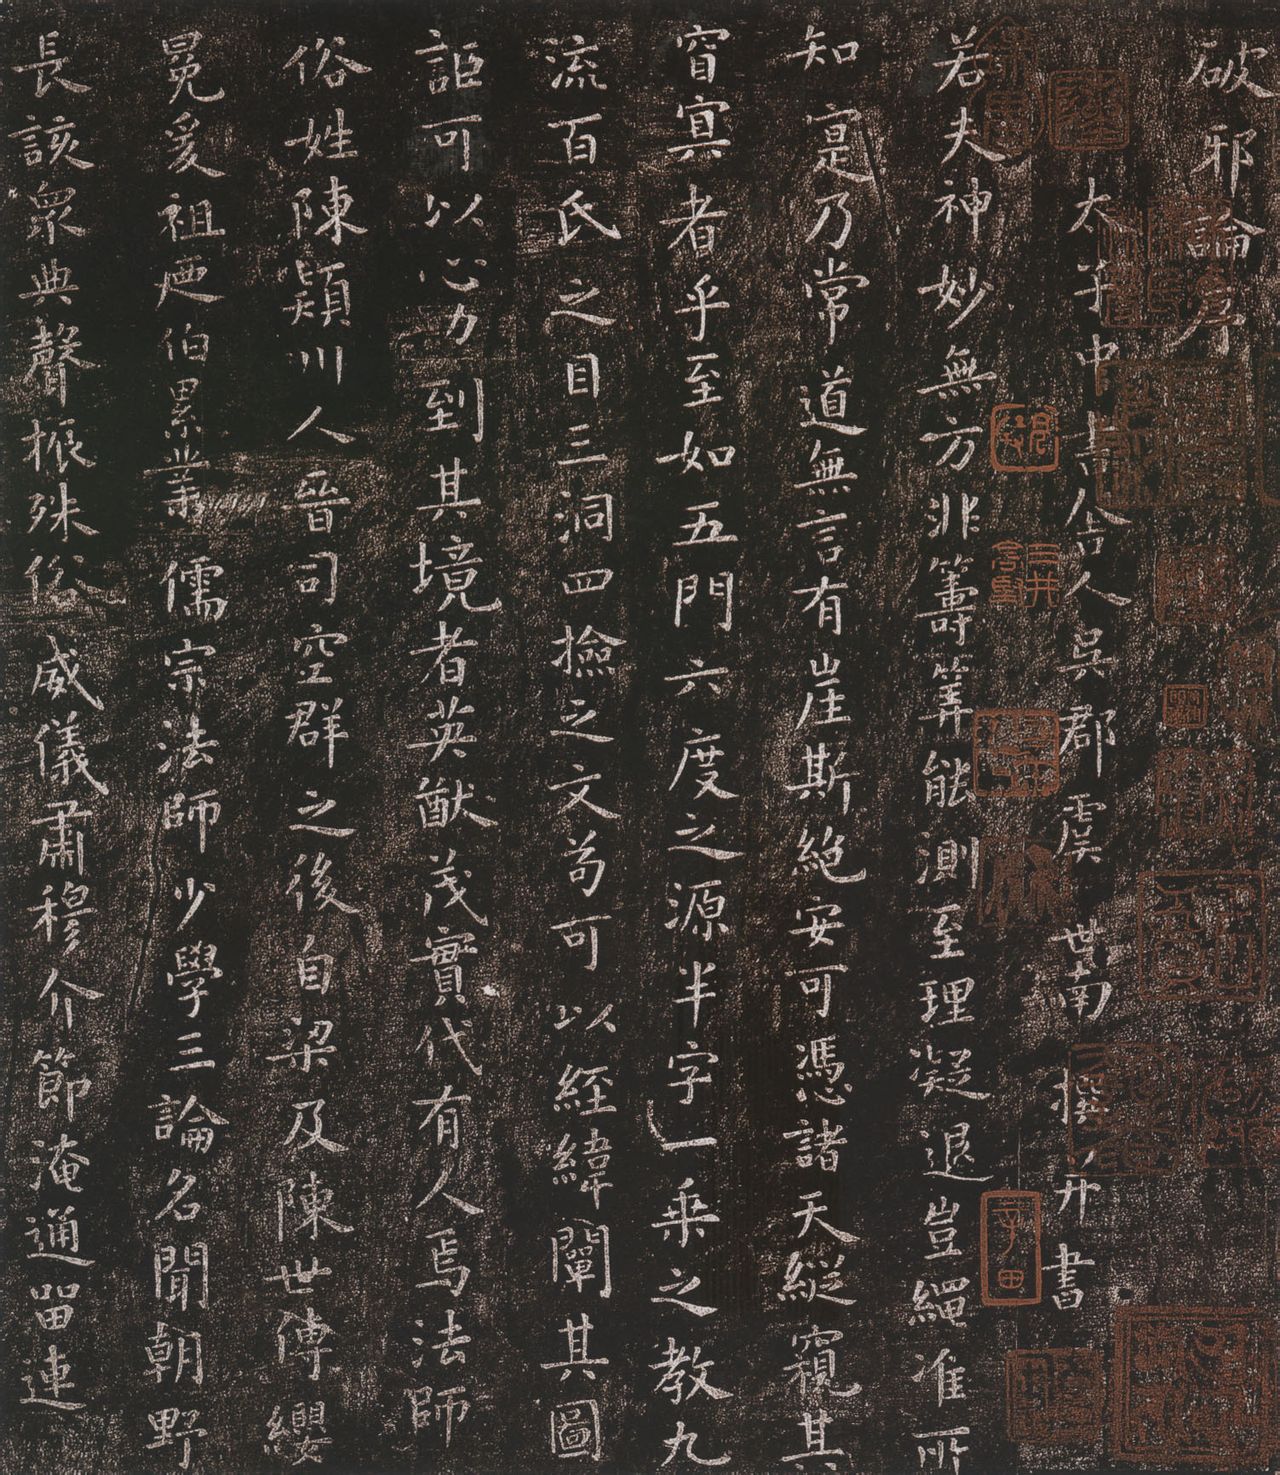 破邪論序
太子中書舍人吳郡虞世南撰并書
若夫神妙無方非籌筭能測至理凝退豈繩准所
知寔乃常道無言有崖斯絶安可憑諸天縱窺其
窅冥者乎至如五門六度之源半字一乘之教九
流百氏之目三洞四撿之文苟可以経緯闡其圖
詎可以心力到其境者英猷茂實代有人焉法師
俗姓陳潁川人晉司空群之後自梁及陳世傳纓
冕爰祖迊伯累業儒宗法師少學三論名聞朝野
長該衆典聲振殊俗威儀肅穆介節淹通留連
三井
子由